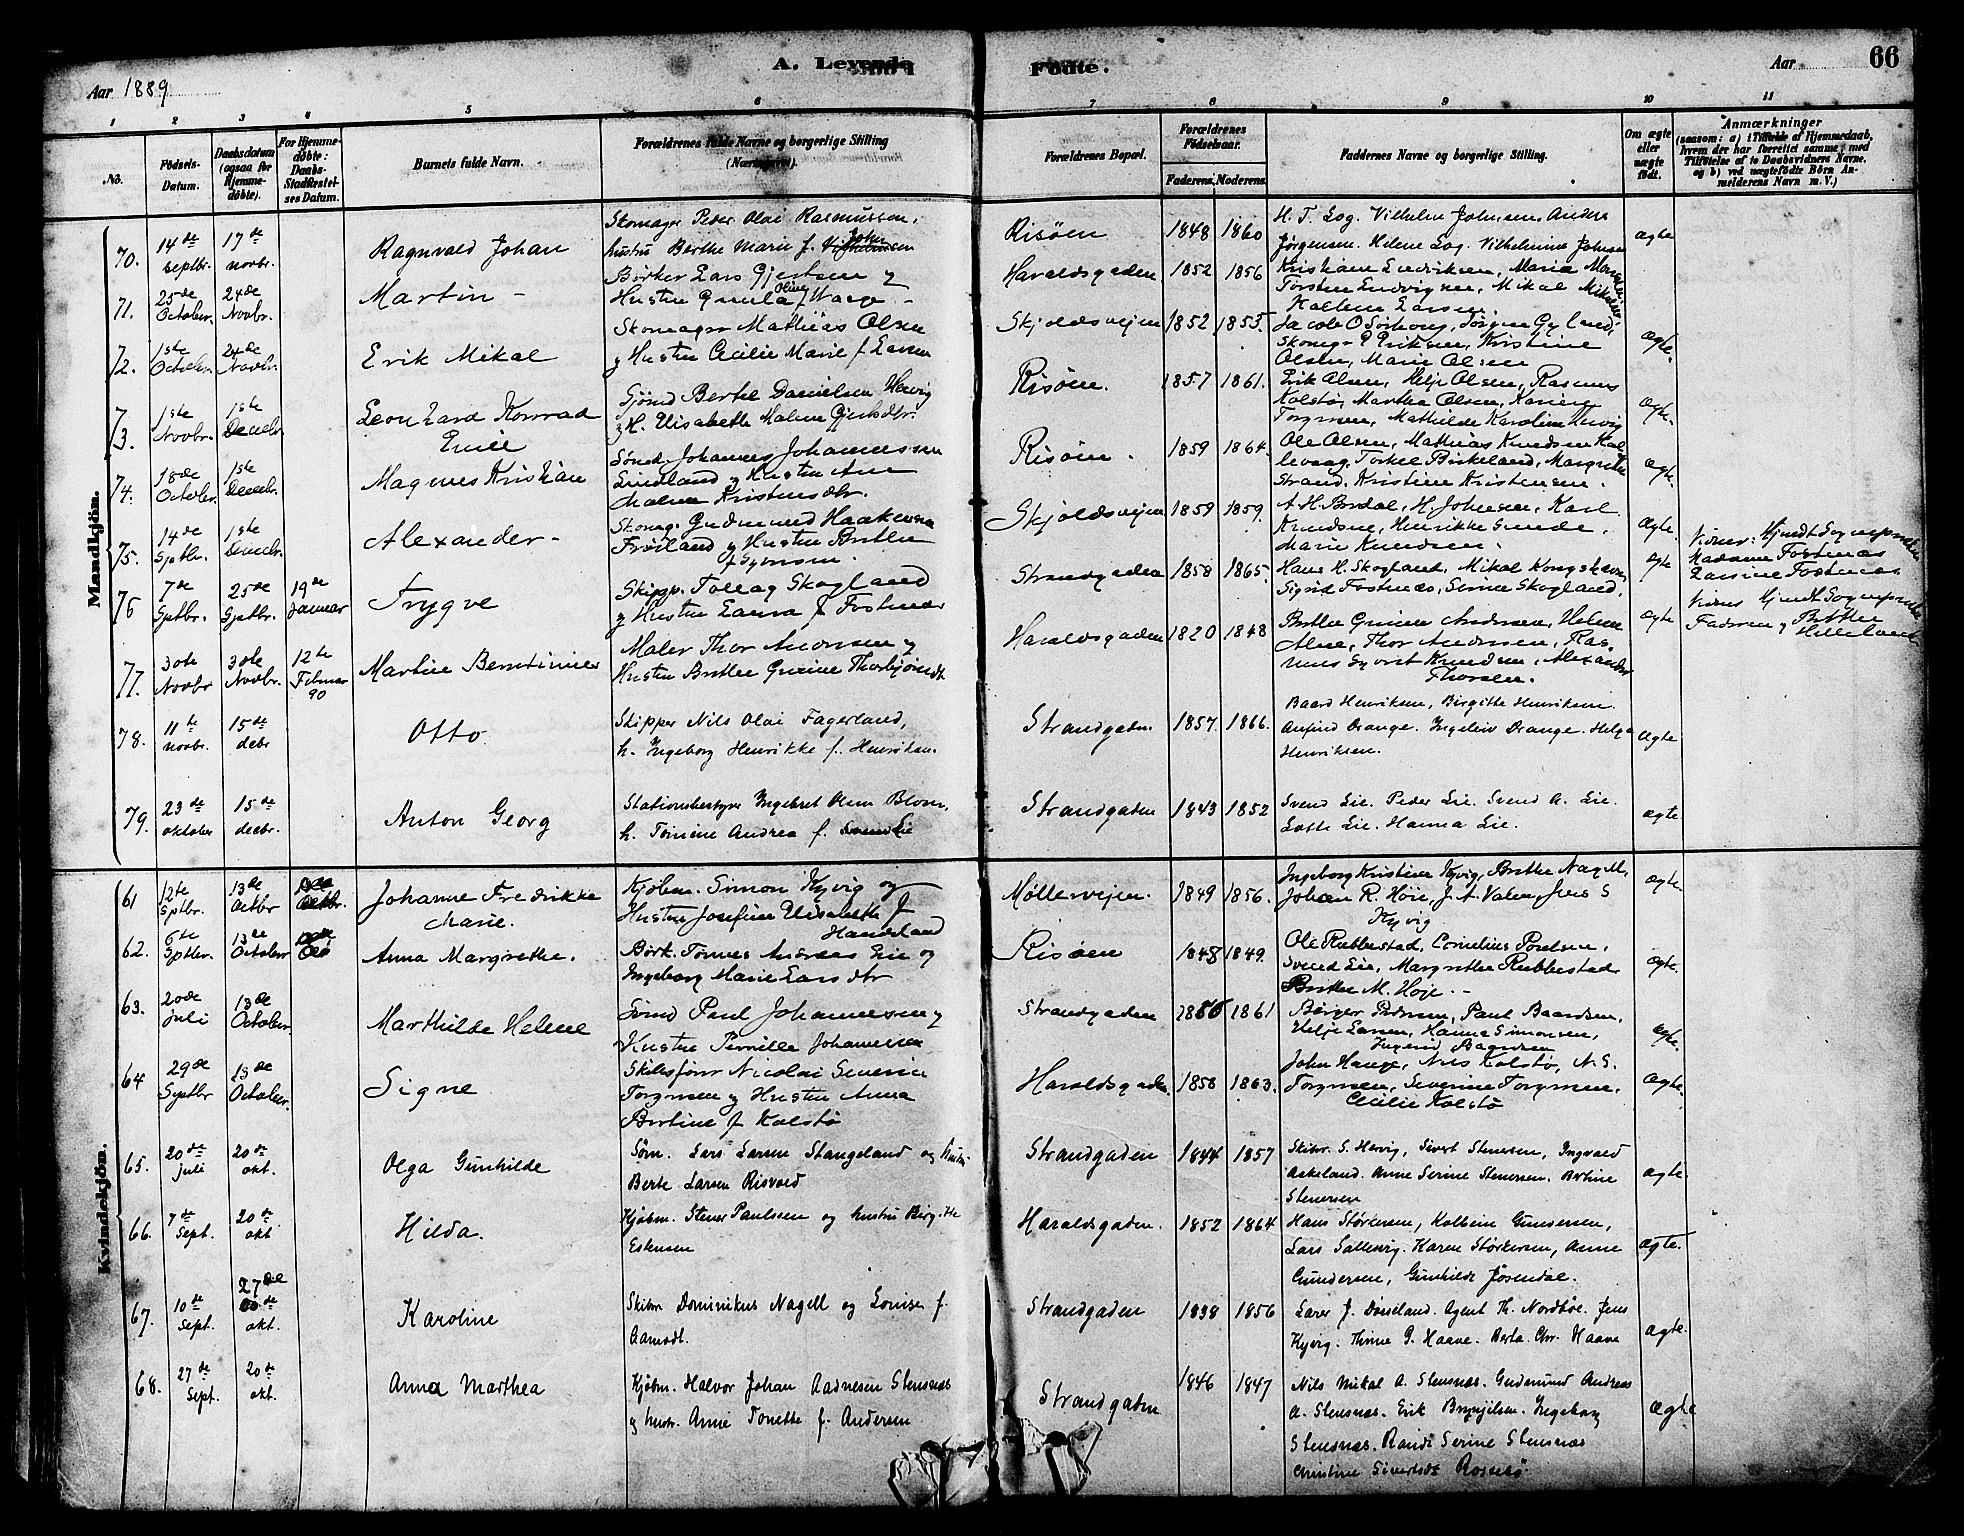 Aar 1889
A. Levende Fødte.
Aar
66
1 2 3 4 5 6 7 8 9 10 11
No.
Fødsels-Datum.
Daabsdatum (ogsaa for Hjemmedøbte).
For Hjemmedøbte: Daabs-Stadfæstelses Datum.
Barnets fulde Navn.
Forældrenes fulde Navne og borgerlige Stilling (Næringsvei).
Forældrenes Bopæl.
Forældrenes Fødselsaar.
Faderens. Moderens.
Faddernes Navne og borgerlige Stilling.
Om ægte eller uægte født.
Anmærkninger
(saasom: a) i Tilfælde af Hjemmedaab, hvem der har forrettet samme, med Tilføielse af to Daabsvidners Navne, og b) ved uægtefødte Børn Anmelderens Navn m. V.)
Mandkjøn.
70. 14de septbr. 17de novbr. Ragnvald Johan
Skomager Peder Olai Rasmussen,
hustru Berthe Marie f. Johnsen
Risøen 1848 1860
H. T. Log. Vilhelm Johnsen. Anders
Jørgensen. Helene Log. Vilhelmine Johnsen
ægte
71. 25de October 24de Novbr. Martin -
Børker Lars Gjertsen og
Hustru Gunla Oline f Waage -
Haraldsgaden 1852 1856
Kristiane Ludviksen, Maria
Torsten Ludvigsen, Mikal
Larsen
72. 1ste October 24de Novbr. Erik Mikal
Skomager Mathias Olsen
og Hustru Cecilie Marie f Larsen
Skjoldsvejen 1852 1853.
Jacob O
Skomgr P Eriksen, Kristine
Olsen, Marie Olsen
ægte.
73. 1ste Novbr. 1ste Decebr Leonhard Konrad
Emil
Sjømd Bertel Danielsen Hervig
og H. Elisabeth Malene Gjertsdtr.
Risøen. 1857 1861.
Erik Olsen, Helje Olsen, Rasmus
Kolstø, Martha Olsen, Karine
Torgersen, Mathilde Karoline Hervig
ægte.
74. 18de October. 1ste Decebr. Magnus Kristian
Sømd. Johannes Johannessen
Lindland og Hustru Ane
Malene Kristensdtr.
Risøen. 1859 1864.
Ole Olsen, Mathias Knudsen Kal
levaag, Torkel Birkeland, Margrethe
Strand, Kristine Kristensen.
ægte.
75. 14de Sptbr. 1ste Decebr. Alexander -
Skomgr. Gudmund Haakonsen
Frøiland og Hustru Berthe
Skjoldsvejen 1859 1859.
A. H. Bordal, H. Johnsen, Karl
Knudsen, Henrikke Sunde,
Marie Knudsen.
ægte.
76 7de Sptbr. 25de Sptbr. 19de Januar Trygve
Skippr. Tollag Skogland
og Hustru Laura f Fosenæs
Strandgaden 1858 1865.
Hans H. Skogland, Mikal Kongshavn,
Sigrid Fostenæs, Serine Skogland.
ægte
Vidner: Hjemdt Sogneprsten
Madame Fostenæs
77. 30te Novbr 30te Novbr. 12te Februar 90 Martin Berntinius
Maler Thor Andersen og
Hustru Berthe Gurine Thorbjørnsdt
Haraldsgaden 1820 1848
Berthe Gurine Andersen, Helene
Alne, Thor Andersen, Ras
mus Syvert Knudsen, Alexander
Thorsen.
ægte
Vidnes Hjemdt Sogneprsten
Faderen og Berthe
78. 11te novbr. 15de debr Otto.
Skipper Nils Olai Fagerland,
h. Ingeborg Henrikke f. Henriksen.
Strandgaden 1857. 1866.
Baard Henriksen, Birgitte Henriksen.
Anfind Drange. Ingeleiv Drange. Helga
Henriksen.
ægte
79. 23de oktober 15de decbr. Anton Georg
Stationsbestyrer Ingebret Olsen Blom,
h. Tomine Andrea f. Lie
Strandgaden 1843 1852
Svend Lie. Peder Lie. Svend A. Lie.
Lotte Lie. Hanna Lie.
ægte.
Kvindekjøn.
61 12te Sptbr. 13de Octbr Johanne Fredrikke
Marie.
Kjøbm. Simon Kyvig og
Hustru Josefine Elisabeth f
Møllervejen. 1849 1856.
Ingeborg Kristine Kyvig, Berthe Nagell,
Johan R. Høie, J. A. Valen, Jens S
Kyvig
ægte.
62. 6te Sptbr. 13de October Anna Margrethe.
Børk. Tønnes Andreas Lie og
Ingeborg Marie Larsdtr
Risøen 1848 1849.
Ole Rubbestad, Cornelius Poulsen,
Svend Lie, Margrethe Rubbestad
Berthe M. Høje. -
ægte.
63. 20de juli 13de October. Marthilde Helene
Sømd Paul Johannesen og
Hustru Pernille Johannesen
Strandgaden 1856 1861
Børger Pedersen, Paul Baardsen,
Helje Larsen, Hanna Simonsen,
ægte.
64 29de Septbr 13de October. Signe
Skibsfører Nicolai Severin
Torgersen og Hustru Anna
Bertine f Kolstø
Haraldsgaden. 1858 1863.
John Hauge, Nils Kolstø, N. S.
Torgersen, Severine Torgersen,
Cecilie Kolstø
ægte.
65. 20de juli 20de okt. Olga Gunhilde
Søm. Lars Larsen Stangeland og hustru
Berte Larsen Risvold
Strandgaden 1844 1857
Skibr. S. Hervig, Sivert Stenersen, Ingvald
Askeland. Anne Serine Stenersen. Bertine
Stenersen
ægte.
66. 7de Sept. 20de okt Hilda.
Kjøbm. Stener Paulssen og hustru Birgitte
Eskensen
Haraldsgaden. 1852 1864
Hans Størkersen, Kolbein Gundersen,
Lars Sallesvig. Karen Størkersen, Anne
Gundersen, Gunhilde Rosendal.
ægte.
67. 10de Sept. 27de okt. Karoline
Skibr Dominikus Nagell og Louise f.
Aamodt.
Strandgaden 1838 1856
Lærer J. Døsseland. Agent Th. Nordbøe. Jens
Kyvig. Thrine G. Haave. Berta Chr. Haave
ægte.
68. 27de Sept. 20de okt. Anna Marthea
Kjøbm. Halvor Johan Aadnesen Stensnæs
og hustr. Anne Tonette f. Andersen
Strandgaden 1846 1847
Nils Mikal A. Stensnæs. Gudmund Andreas
A. Stensnæs. Erik Brynjelsen. Ingeborg
Stensnæs. Randi Serine Stensnæs
Christine Sivertsdt Rossebø.
ægte